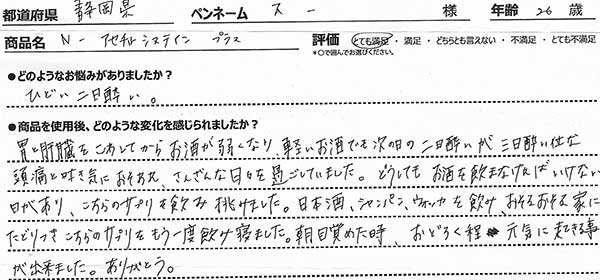 都道府県 静岡県 ペンネーム スー 様 年齢 26 歳
商品名 N-アセチルシステイン プラス 評価 とても満足・満足・どちらとも言えない・不満足・とても不満足
*○で囲んでお選びください。
●どのようなお悩みがありましたか?
ひどい二日酔い。
●商品を使用後、どのような変化を感じられましたか?
胃と肝臓をこわしてからお酒が弱くなり、軽いお酒でも次の日の二日酔いが三日酔い位な
頭痛と吐き気におそわれ、さんざんな日々を過ごしていました。どうしてもお酒を飲まなければいけない
日があり、こちらのサプリを飲み挑みました。日本酒、シャンパン、ウォッカを飲み、おそるおそる家に
たどりつきこちらのサプリをもう一度飲み寝ました。朝目覚めた時、おどろく程元気に起きる事
が出来ました。ありがとう。